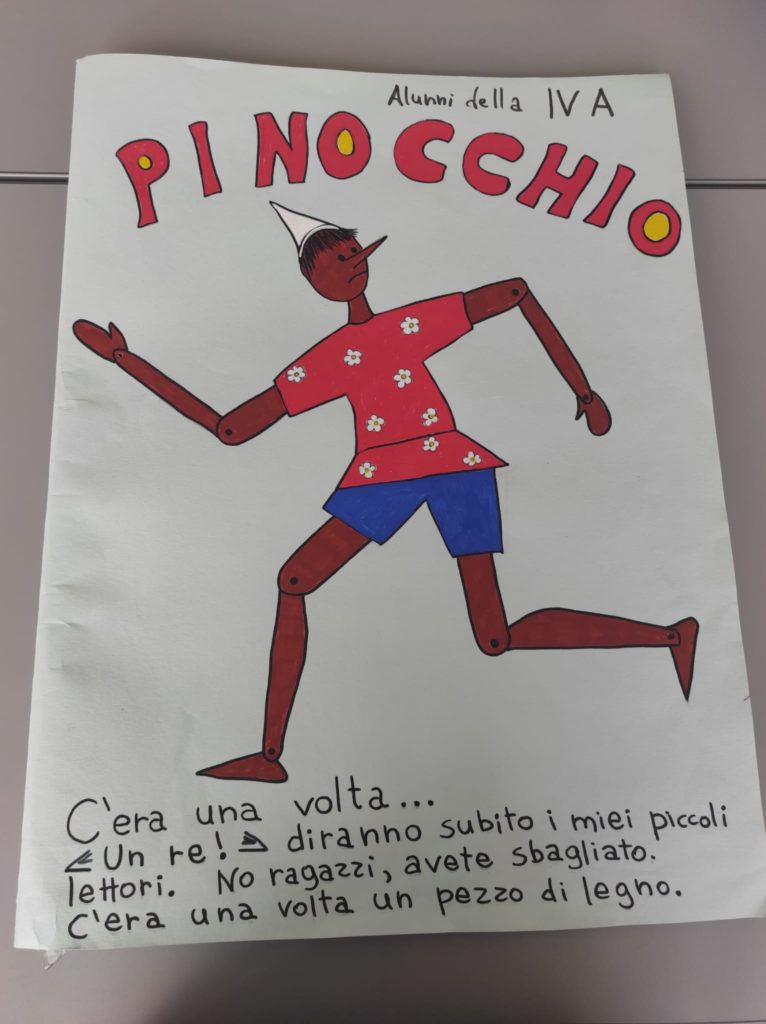 Alunni della IV A
PINOCCHIO
C'era una volta...
«Un re!» diranno subito i miei piccoli
lettori. No ragazzi, avete sbagliato.
C'era una volta un pezzo di legno.